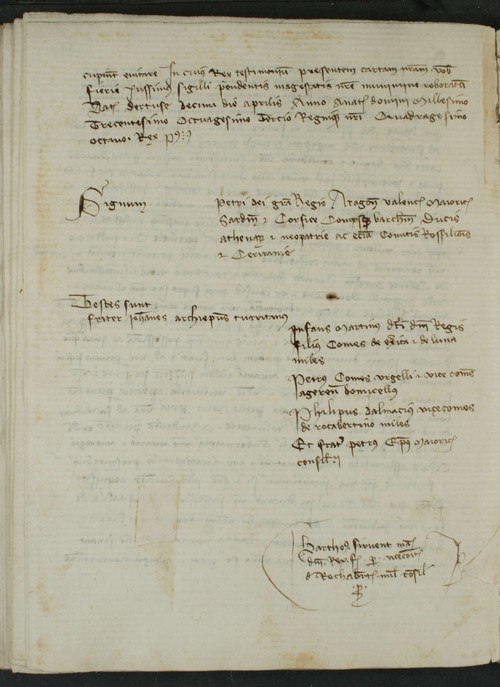 cupiunt evitare In cuius Rey testimonium pressentem cartam nram vob
fierie Jussimus sigilli pendentis magestatis nre munimine roboratam
Dat dertuse decima die aprilis Anno Anat domini Millesimo
Trecentesimo Octuagesimo Tercio Regnique nri Quadragesimo
octavo: Rex P:
Signum
petri dei gra Regis Aragon Valenc Maioric
Sardin et Corsice Comes barchin Ducis
athenar et neopatrie ac ecia Comitis Rossilionis
et Ceritanie
Testes sunt
frater Johanes archiepus turritanus
Infans Martinus dti dni Regis
filius Comes de exerica et de luna
miles
Petrus Comes urgelli et vice comes
ageren domicellus
Philipus dalmacius vicecomes
de rocabertino miles
Et frat petrus Epus Maioric
consil
Barthos sirvent
dni Rey fi p vicecom
d Rochabti mil consil